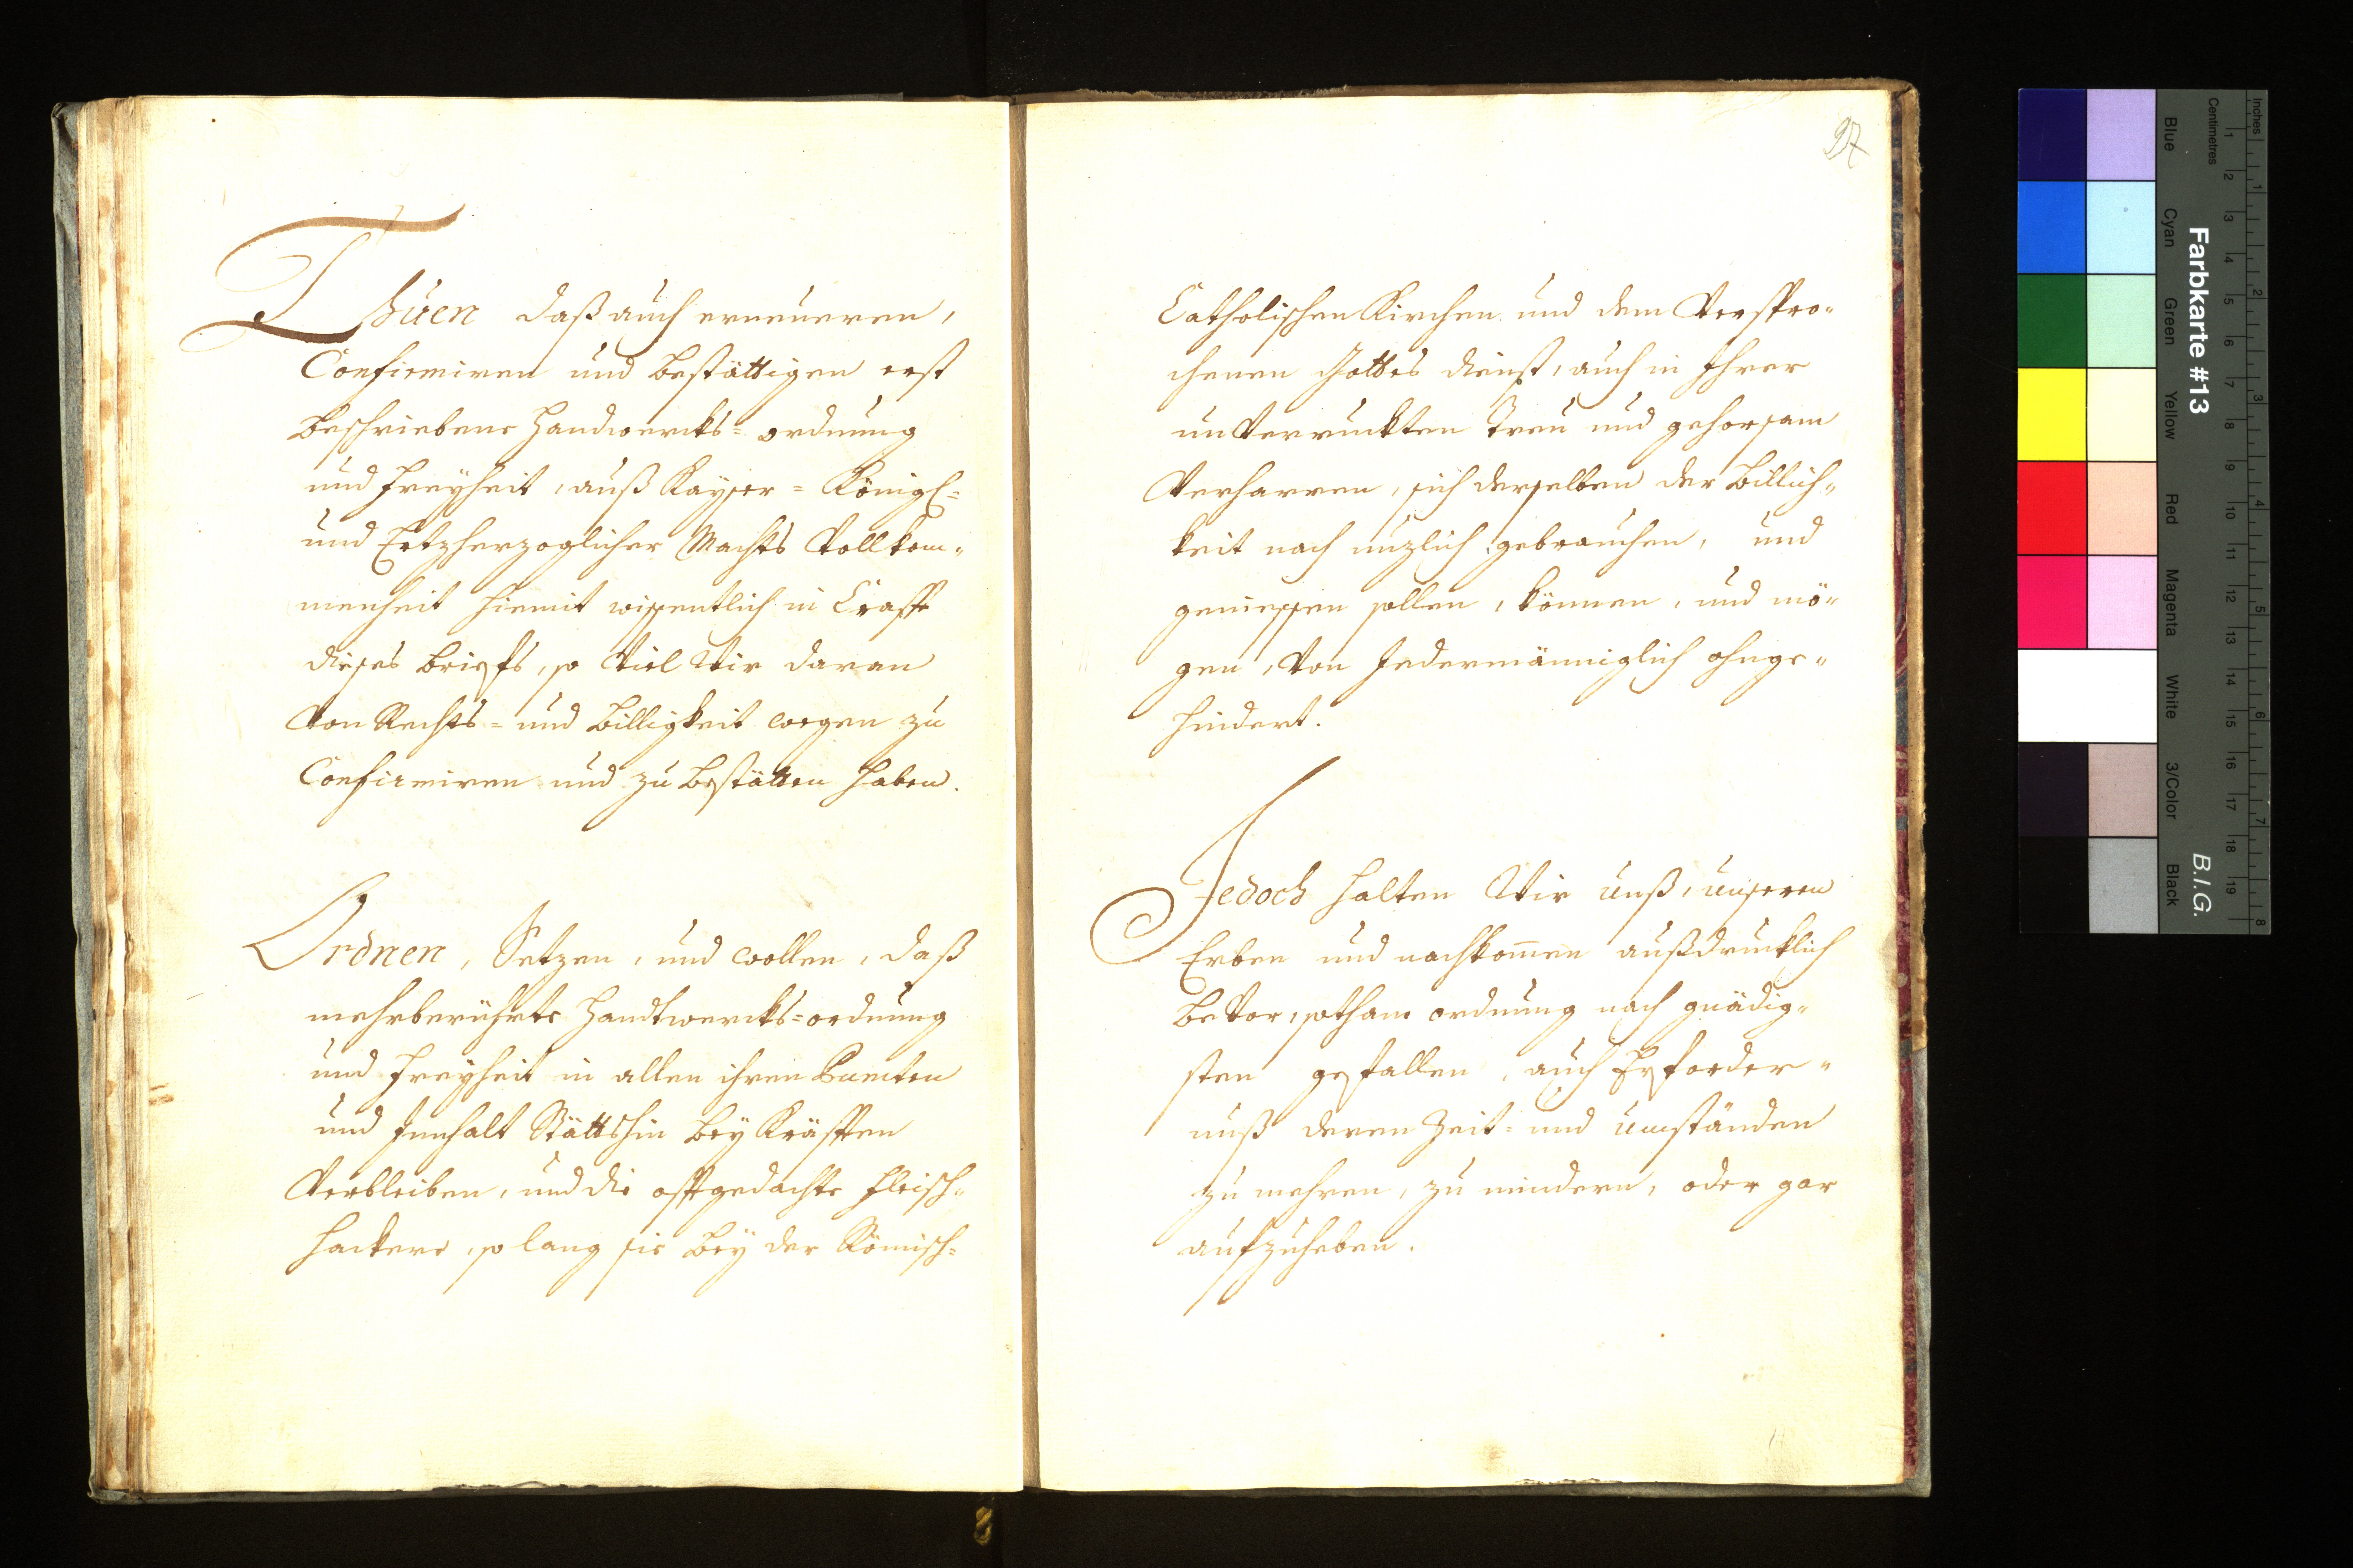 Thuen daß auch erneueren,
Confirmiren und bestättigen erst
beschriebene Handwercks= ordnung
und Freyheit, auß Kayser= Königl=
und Ertzherzoglicher Machts Vollkom„
menheit hiemit wissentlich in Crafft
dieses briefs, so Viel Wir daran
Von Rechts= und billigkeit wegen zu
Confirmiren und zu bestätten haben.
Ordnen, Setzen, und wollen, daß
mehrberührte Handtwercks=ordnung
und Freyheit in allen ihren Puncten
und Innhalt Stättshin bey Kräfften
Verbleiben, und die offtgedachte Fleisch„
hackere, so lang sie bey der Römisch=
27
Catholischen Kirchen und dem Verspro„
chenen Gottes dienst, auch in Ihrer
unVerruckten Treu und gehorsam
Verharren, sich derselben der Billich„
keit nach nuzlich gebrauchen, und
geniessen sollen, können, und mö„
gen, Von Jedermänniglich ohnge„
hindert.
Jedoch halten Wir unß, unseren
Erben und nachkom̄en außdrucklich
beVor, sothane ordnung nach gnädig„
sten gefallen, auch Erforder„
nuß deren Zeit= und umständen
zu mehren, zu mindern, oder gar
aufzuheben.
8
Inches
Centimetres
1 2 3 4 5 6 7 8
1 2 3 4 5 6 7 8 9 10 11 12 13 14 15 16 17 18 19
Farbkarte #13
B.I.G.
Blue
Cyan
Green
Yellow
Red
Magenta
White
3/Color
Black